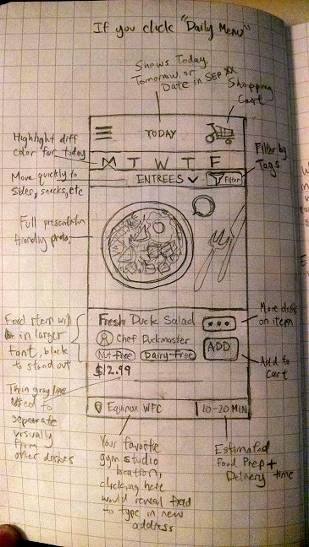 If you click "Daily Menu"
Shows Today
Tomorrow or
Date in SEP XX
Shopping
Cart
TODAY
Highlight diff
color for today
M T W T F
Filter by
Tags
Move quickly to
sides, snacks, etc
ENTREES
Filter
Full presentation
friendly photo
Food item will
be in larger
font, black
to stand out
Fresh Duck Salad
...
More details
on item
Chef Duckmaster
Nut-Free
Dairy-Free
ADD
$12.99
Add to
Cart
Thin gray line
used to
separate
visually
from
other dishes
Equinox WFC
10-20 MIN
Your favorite
gym studio
location,
clicking here
would reveal field
to type in new
address
Estimated
Food Prep +
Delivery time